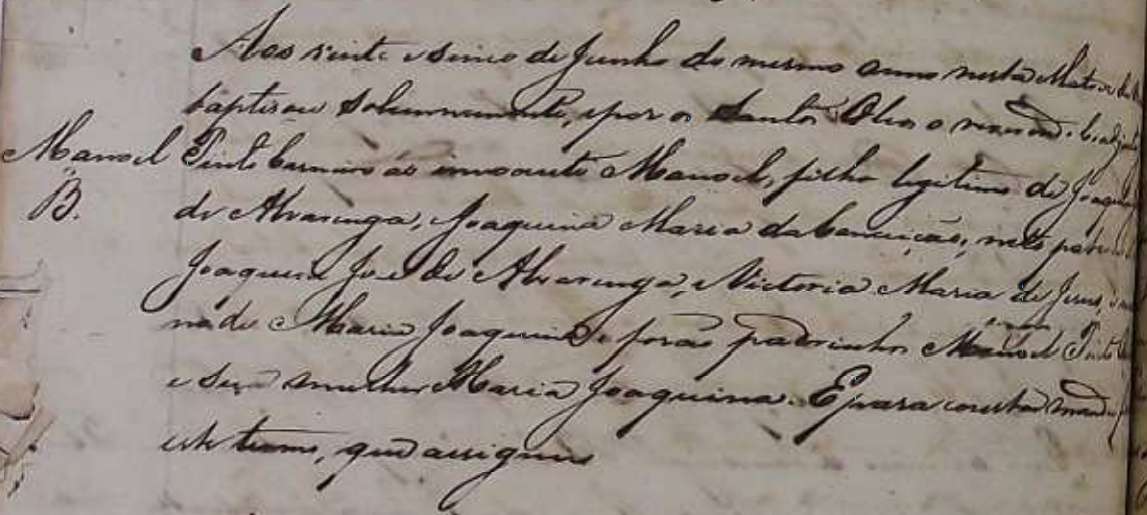 Aos vinte e sinco de Junho do mesmo anno nesta Matriz
baptisou Solemnemente, e por os Santos Oleos o
Manoel Pinto Carneiro ao innocente Manoel, filho legitimo de Joaquim
B. de Alvarenga, Joaquina Maria da Conceicão, neto
Joaquim José de Alvarenga, e Victoria Maria de Jesus,
na de Maria Joaquina e forão padrinhos Manoel Pinto
e sua mulher Maria Joaquina. E para constar mandei
este termo, que assignei